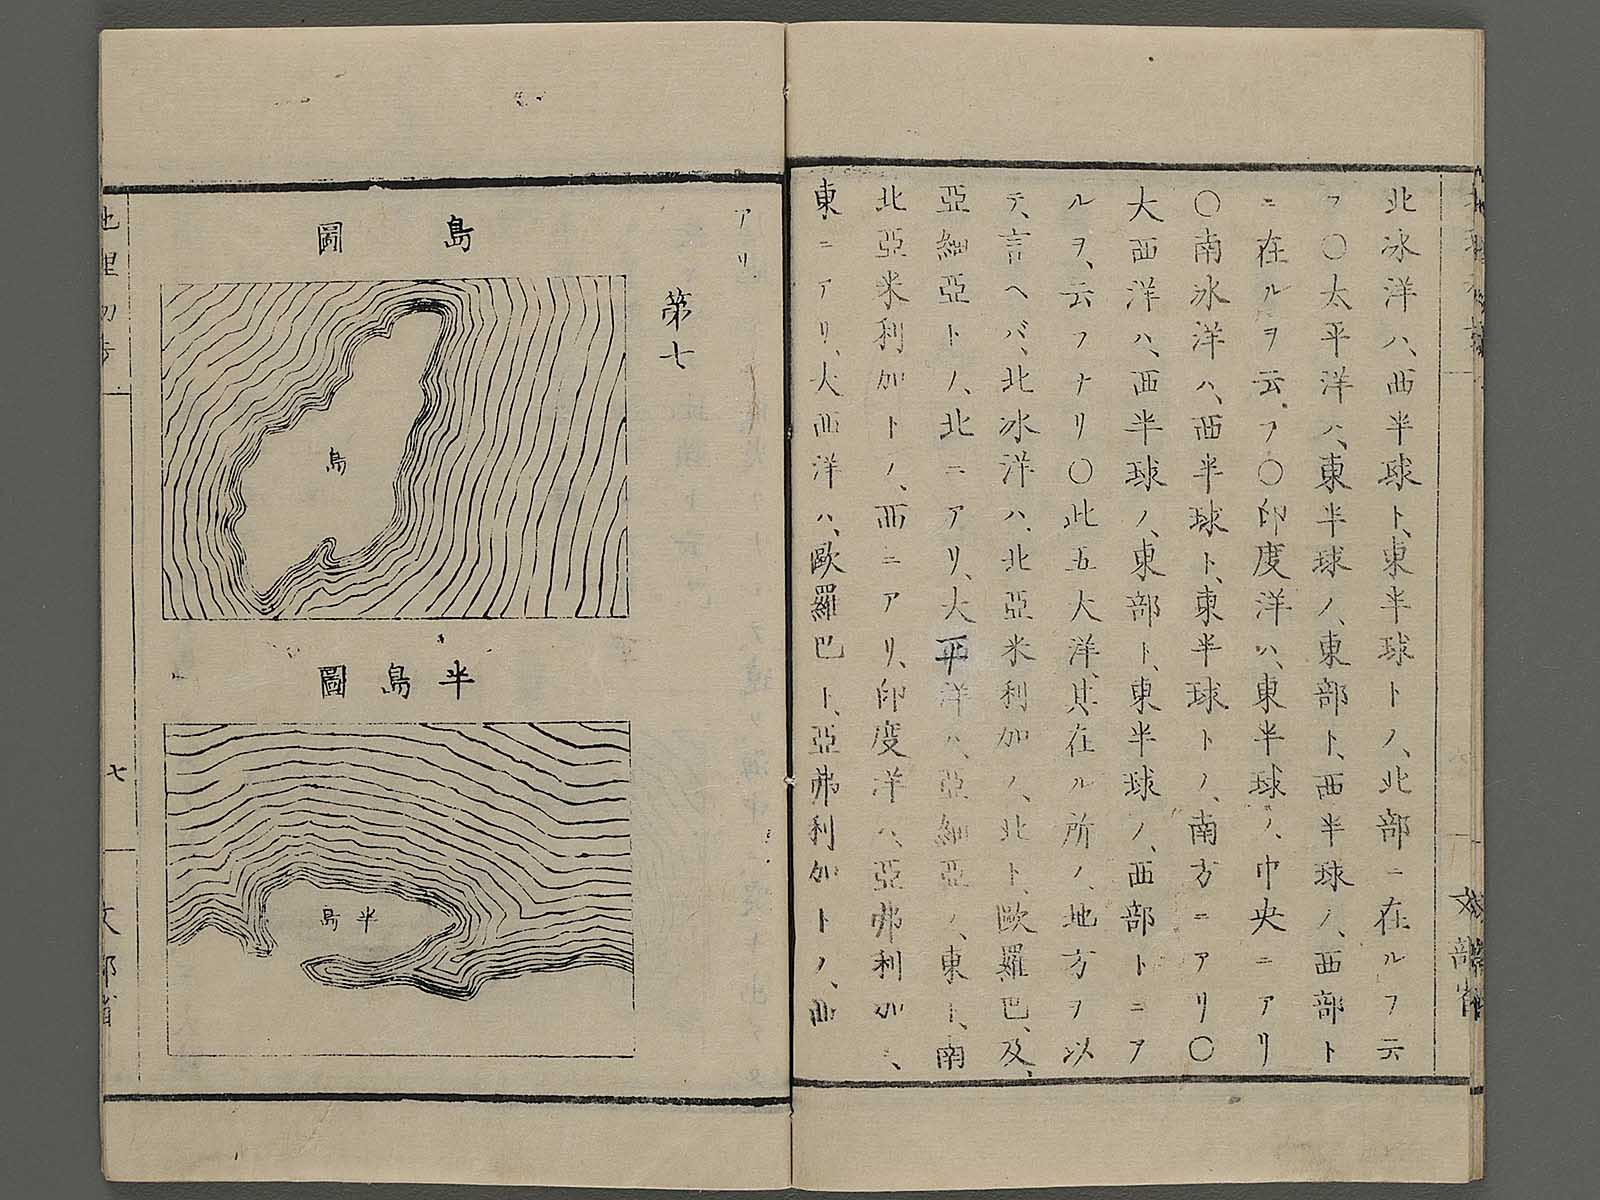 北冰洋ハ、西半球ト、東半球トノ、北部ニ在ルヲ云
フ〇太平洋ハ、東半球ノ、東部ト、西半球ノ、西部ト
ニ在ルヲ云フ〇印度洋ハ、東半球ノ、中央ニアリ
〇南冰洋ハ、西半球ト、東半球トノ、南方ニアリ〇
大西洋ハ、西半球ノ、東部ト、東半球ノ、西部トニア
ルヲ、云フナリ〇此五大洋、其在ル所ノ、地方ヲ以
テ、言ヘバ、北冰洋ハ、北亞米利加ノ、北ト、歐羅巴、及、
亞細亞トノ、北ニアリ、大平洋ハ、亞細亞ノ、東ト、南
北亞米利加トノ、西ニアリ、印度洋ハ、亞弗利加ノ、
東ニアリ、大西洋ハ、歐羅巴ト、亞弗利加トノ、西
アリ
第七
島圖
島
半島圖
半島
七
文部省